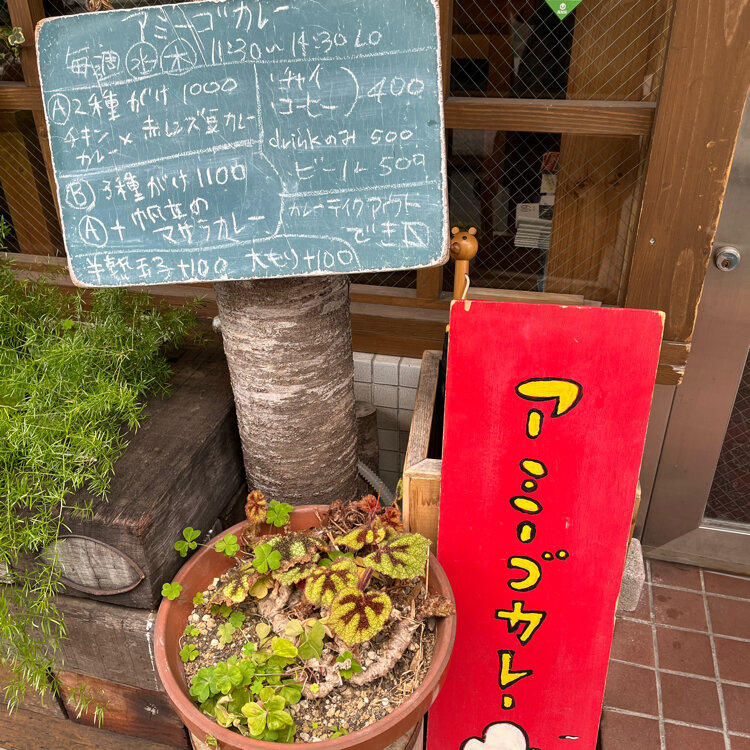 アミーゴカレー
毎週 水 木 11:30〜14:30LO
Ⓐ2種がけ 1000
チキンカレー×赤レンズ豆カレー
Ⓑ3種がけ 1100
Ⓐ+帆立のマサラカレー
半熟玉子+100 大もり+100
チャイ
コーヒー 400
drinkのみ 500
ビール 500
カレーテイクアウト
できます
アミーゴカレー